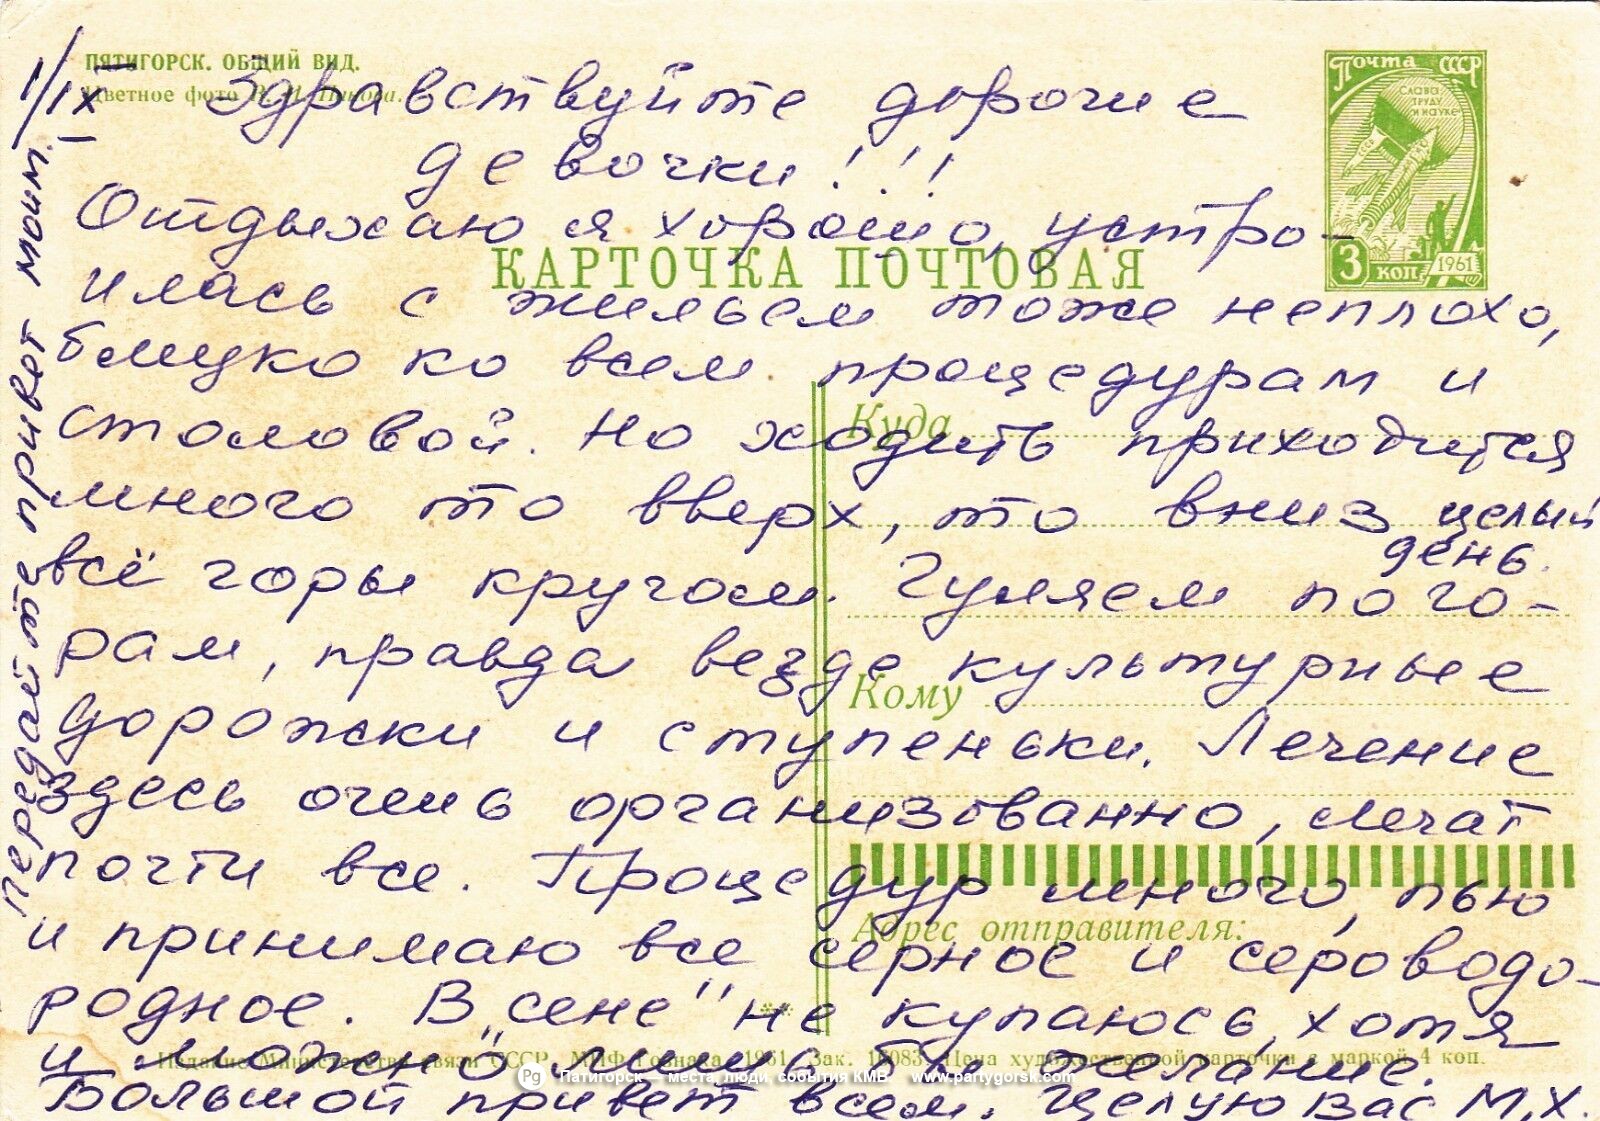 ПЯТИГОРСК. ОБЩИЙ ВИД.
Цветное фото
1/IX
Здравствуйте дорогие
девочки!!!
Почта СССР
СЛАВА ТРУДУ И НАУКЕ
3 коп 1961
КАРТОЧКА ПОЧТОВАЯ
Отдыхаю я хорошо, устро-
илась с жильем тоже неплохо,
близко ко всем процедурам и
столовой. Но ходить приходится
много то вверх, то вниз целый
день.
всё горы кругом. Гуляем по го-
рам, правда везде культурные
дорожки и ступеньки. Лечение
здесь очень организованно, лечат
почти все. Процедур много, пью
и принимаю все серное и сероводо-
родное. В „сене" не купаюсь, хотя
и можно лишь бы желание.
Большой привет всем. Целую Вас М.Х.
передайте привет моим.
Куда
Кому
Адрес отправителя:
Издание Министерства связи СССР. МПФ Гознака. 1961. Зак. 16083. Цена художественной карточки с маркой 4 коп.
Pg Пятигорск — места, люди, события КМВ www.partygorsk.com